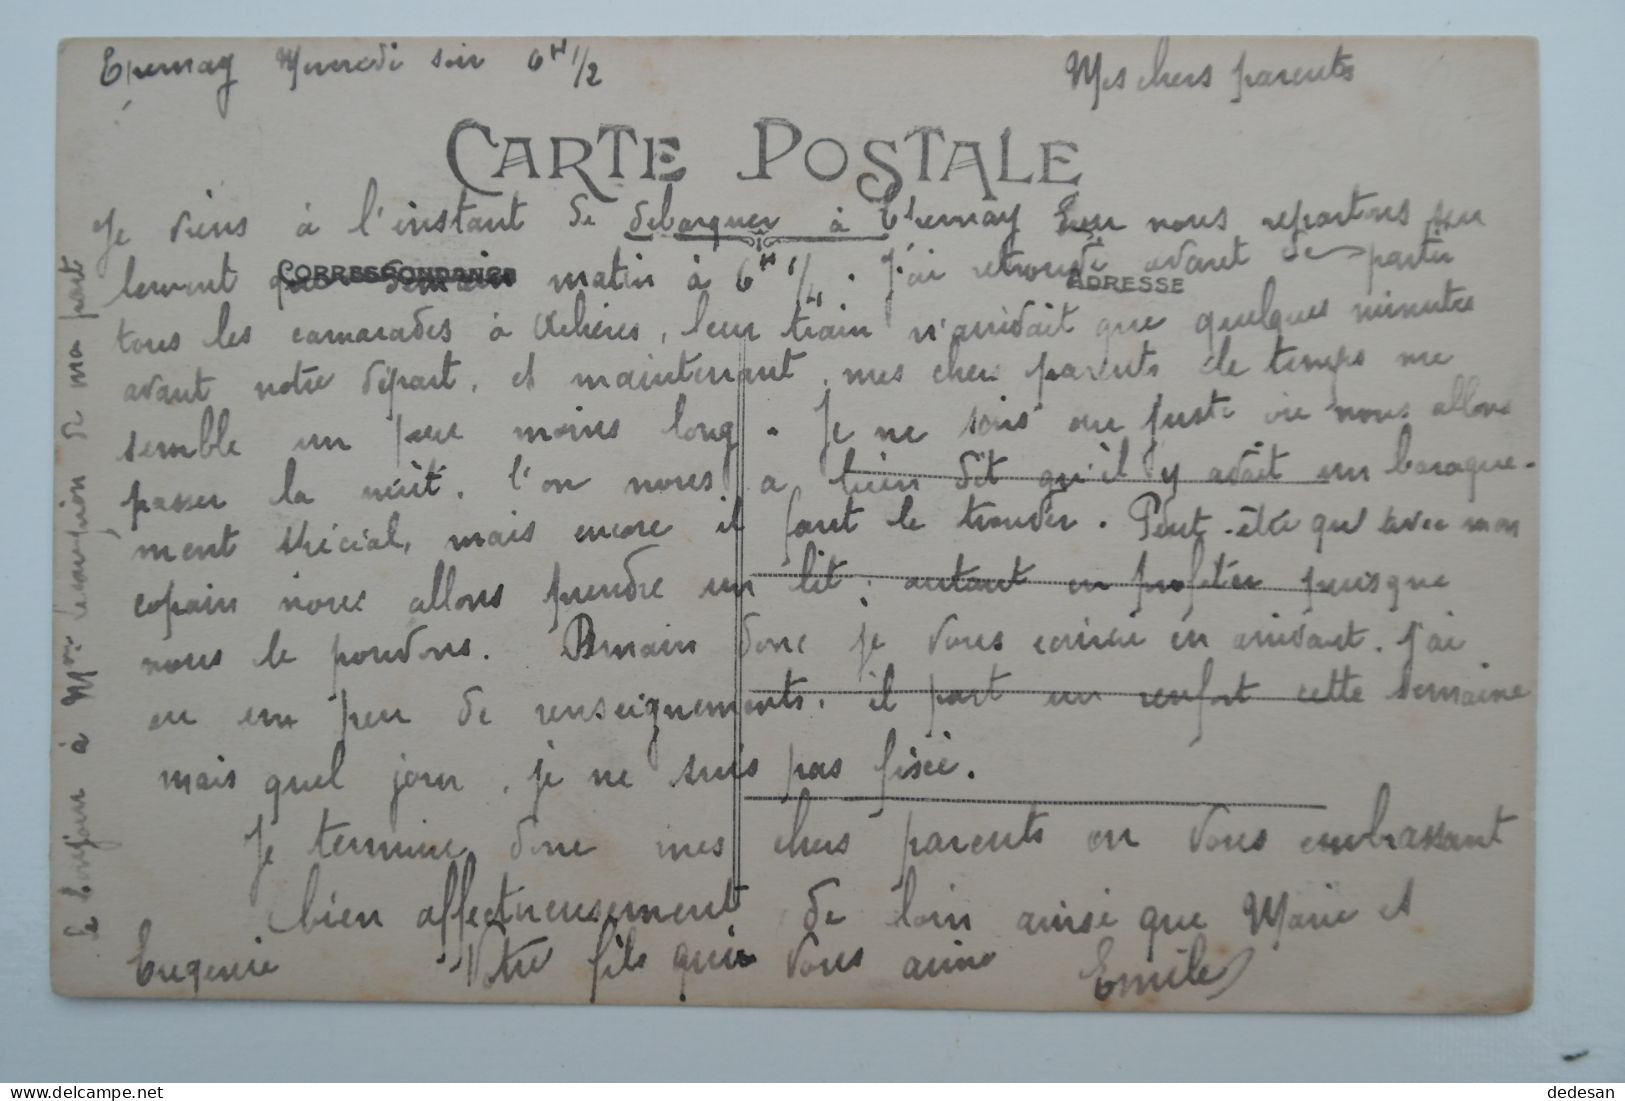 Epernay Mercredi soir 6H 1/2
Mes chers parents
CARTE POSTALE
Je viens à l'instant de débarquer à Epernay nous repartons seu
lement que demain matin à 6H 1/4. J'ai retrouvé avant de partir
CORRESPONDANCE
ADRESSE
tous les camarades à Achères, leur train n'arrivait que quelques minutes
avant notre départ. et maintenant, mes chers parents le temps me
semble un peu moins long. Je ne sais au juste où nous allons
passer la nuit. l'on nous a bien dit qu'il y avait un baraque-
ment spécial, mais encore il faut le trouver. Peut-être qu'avec mon
copain nous allons prendre un lit; autant en profiter puisque
nous le pouvons. Demain donc je vous écrirai en arrivant. J'ai
eu un peu de renseignements, il part un renfort cette semaine
mais quel jour, je ne suis pas fixé.
Je termine donc mes chers parents en vous embrassant
bien affectueusement de loin ainsi que Marie et
Eugenie Votre fils qui vous aime Emile
Le bonjour à Mme de ma part
dedesan